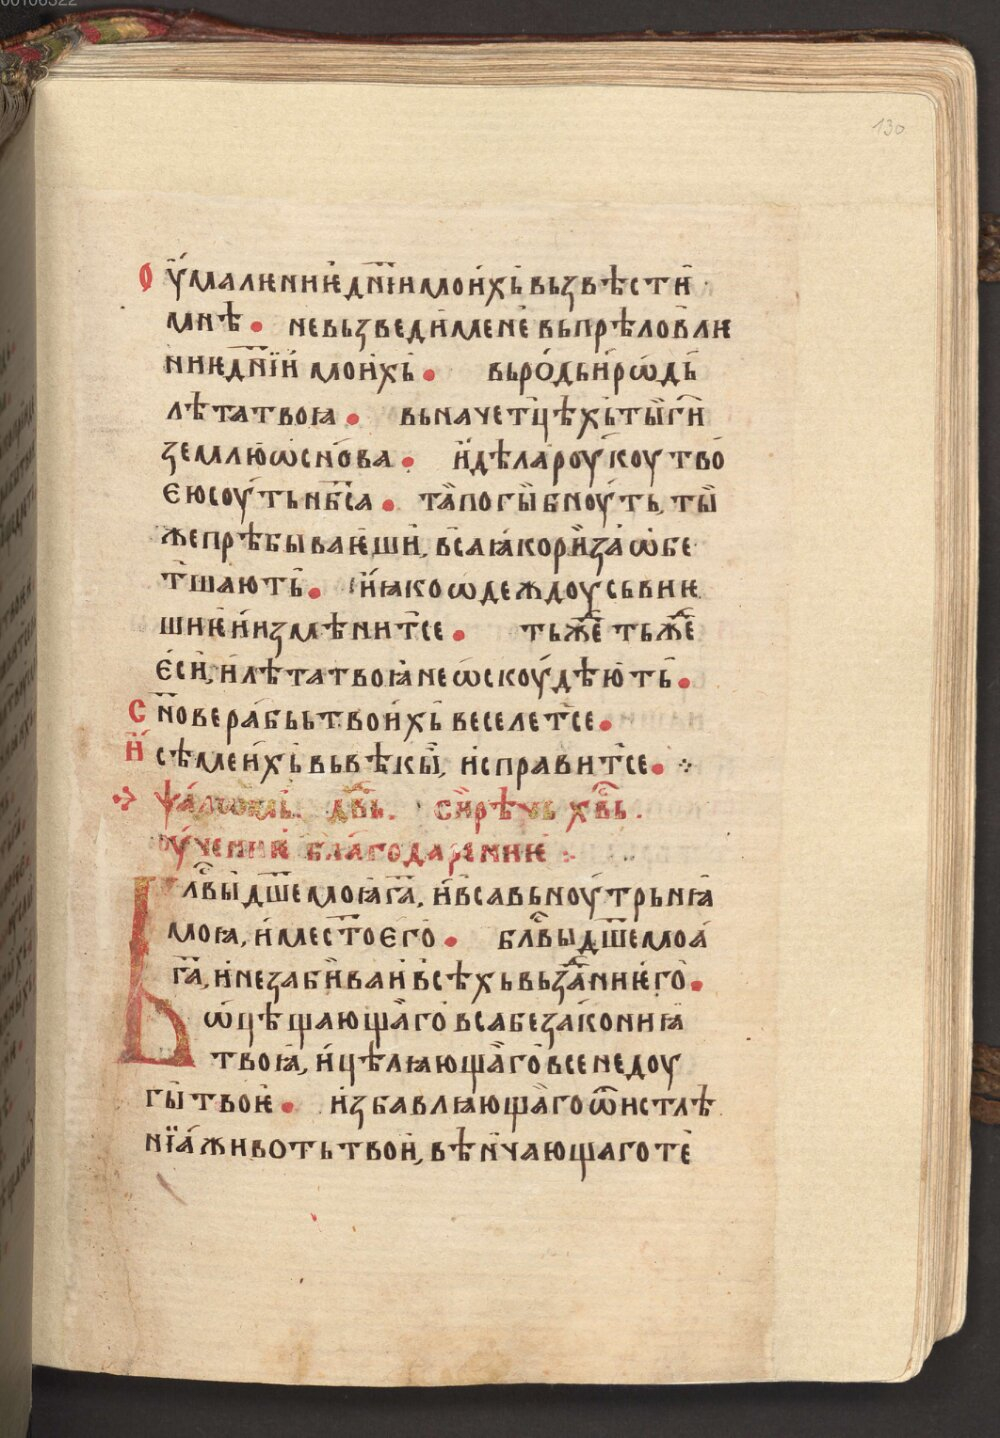 130
Оу҆малѥниѥ дн҃їи мои́хь вьзвѣсти
мнѣ • не вьзведи мене вь прѣловлѥ
ниѥ дн҃їи моихь • вь рѻдь и рѡдь
лѣта твоꙗ • вь начетцѣхь ты г҃и
землю ѡснова • и дѣла роукоу тво
ѥю соуть нб҃са • та погыбноуть, ты
же прѣбываѥши, вса ꙗко риза ѡбе
тшають • и ꙗко ѡдеждоу сьвиѥ
шиѥ и измѣнитсе • тьжⷣе тьжⷣе
ѥси, и лѣта твоꙗ не ѡскоудѣють •
Сн҃ове рабь твоихь веселетсе •
И сѣме ихь вь вѣкы, исправитсе •
ψалѡмь. дв҃ь. сирѣчь хв҃ь.
учениѥ благодарениѥ
Блⷭ҇ви дш҃е моꙗ га҃, и вса вьноутрьнꙗ
моꙗ, име ст҃о ѥго • блⷭ҇ви дш҃е моа
га҃, и не забиваи всѣхь вьзданиѥго •
ѡцѣщающаго вса безакониꙗ
твоꙗ, и цѣлꙗющаго все недоу
гы твоѥ • избавлꙗющаго ѿ истлѣ
нїа животь твои, вѣнчающаго те